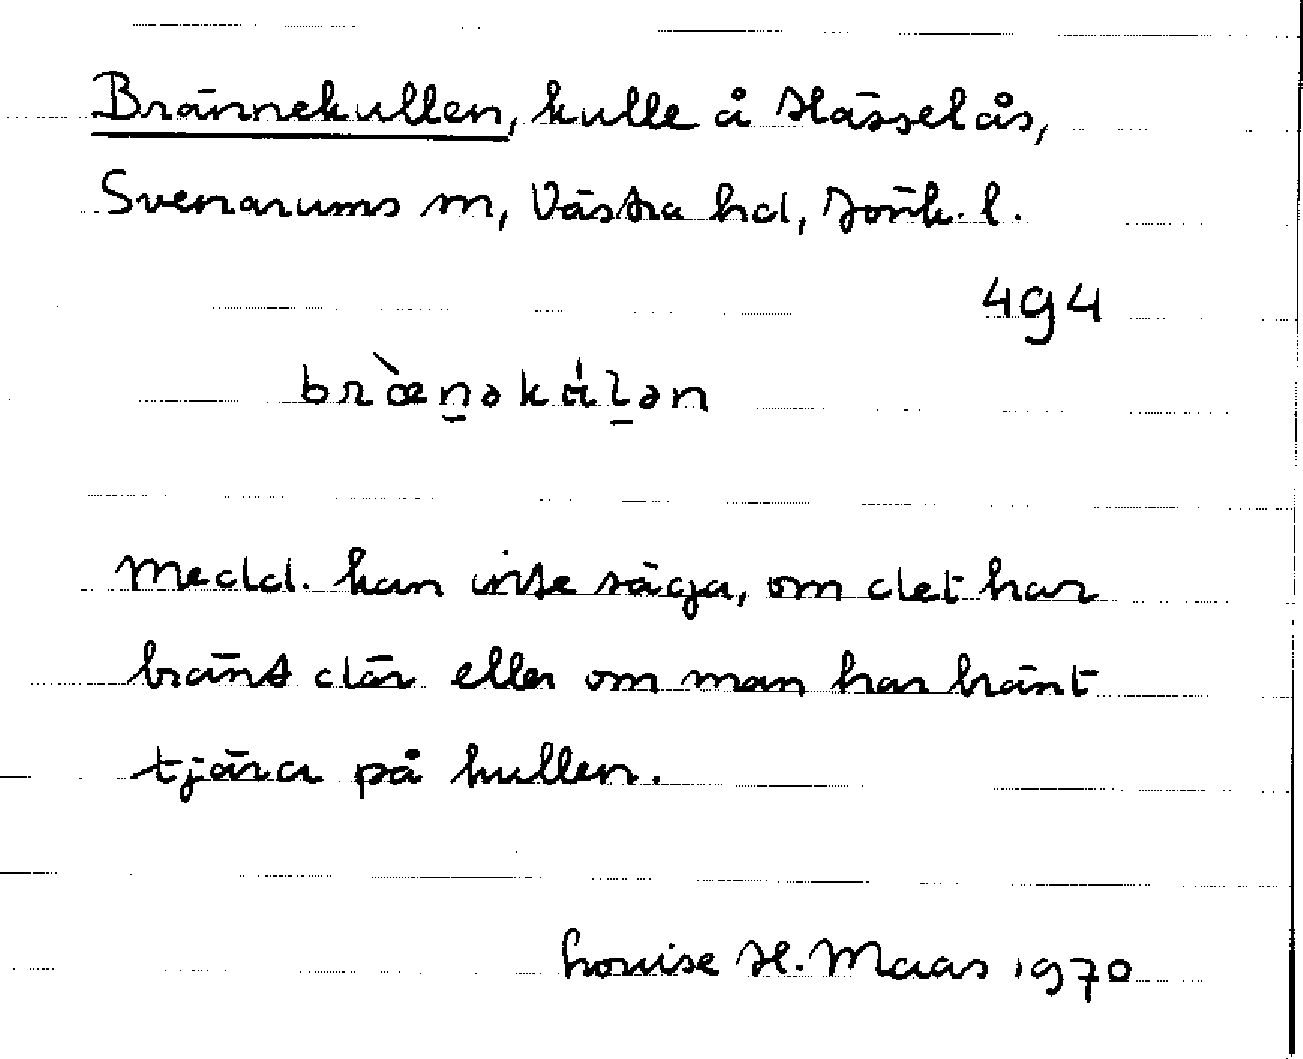 Brännekullen, kulle å Hässelås,
Svenarums sn, Västra hd, Jönk. l.
4g4
bræ̀n̠əkál̠ən
Medd. kan inte säga, om det har
bränt där eller om man har bränt
tjära på kullen.
Louise H. Maas 1970